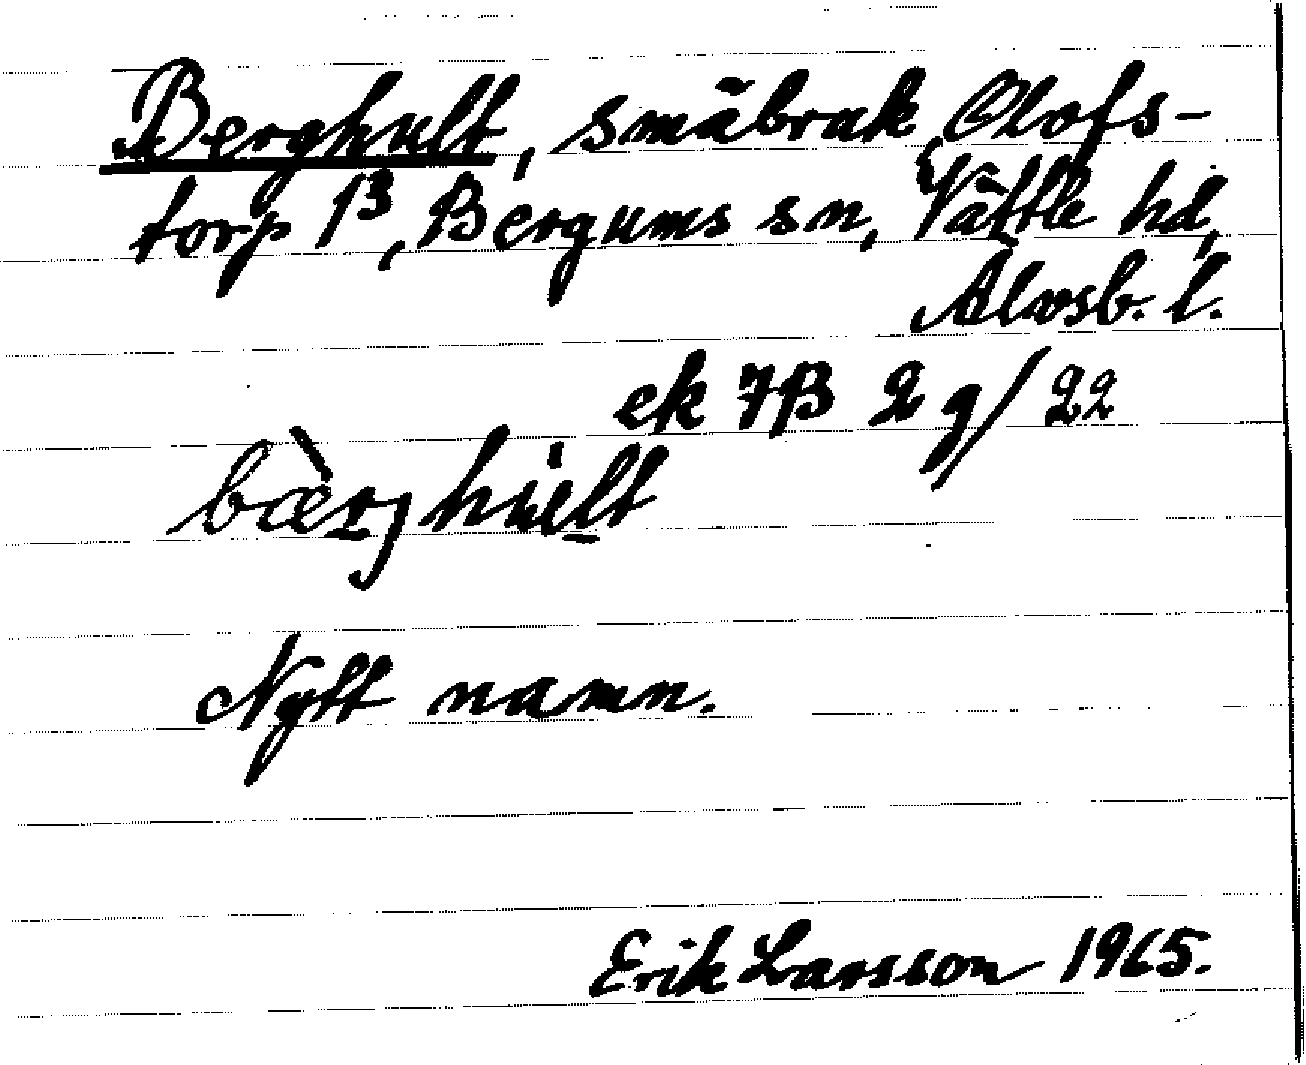 Berghult, småbruk, Olofs-
torp 1³, Bergums sn, Vättle hd,
Älvsb. l.
ek 7B 2 g/22
bæ̀rjhult
Nytt namn.
Erik Larsson 1965.